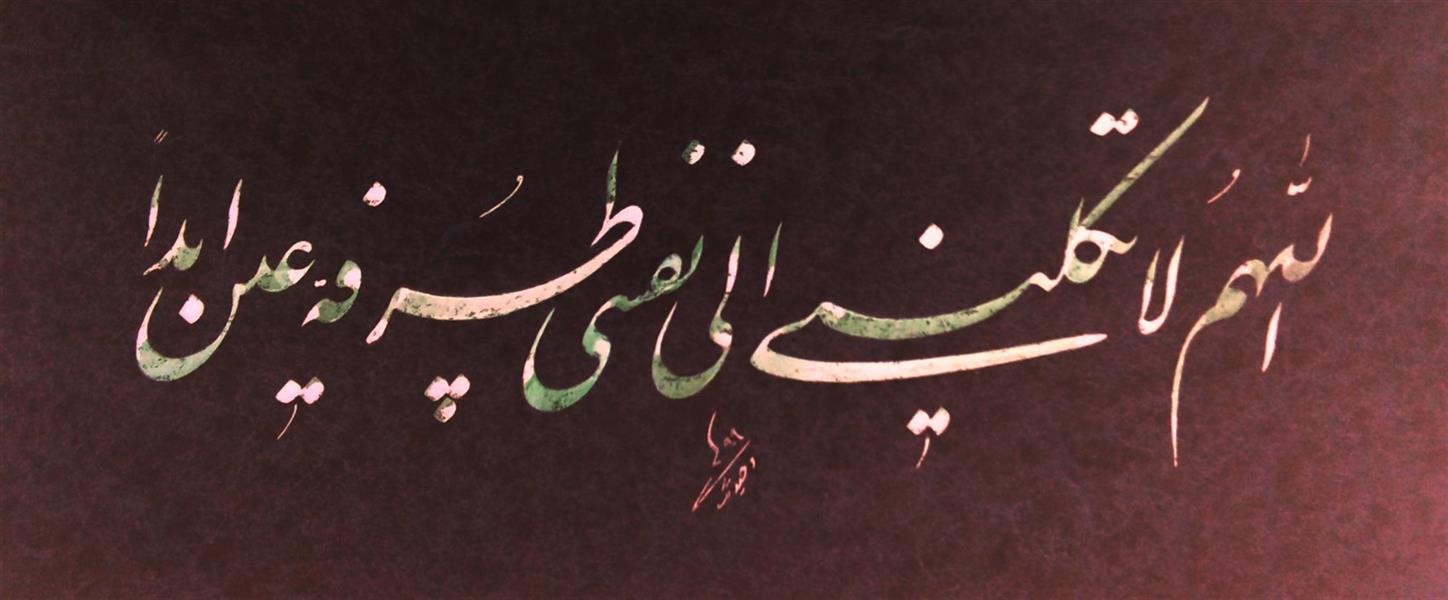 اللهم لا تکلینی الی نفسی طرفة عین ابداً